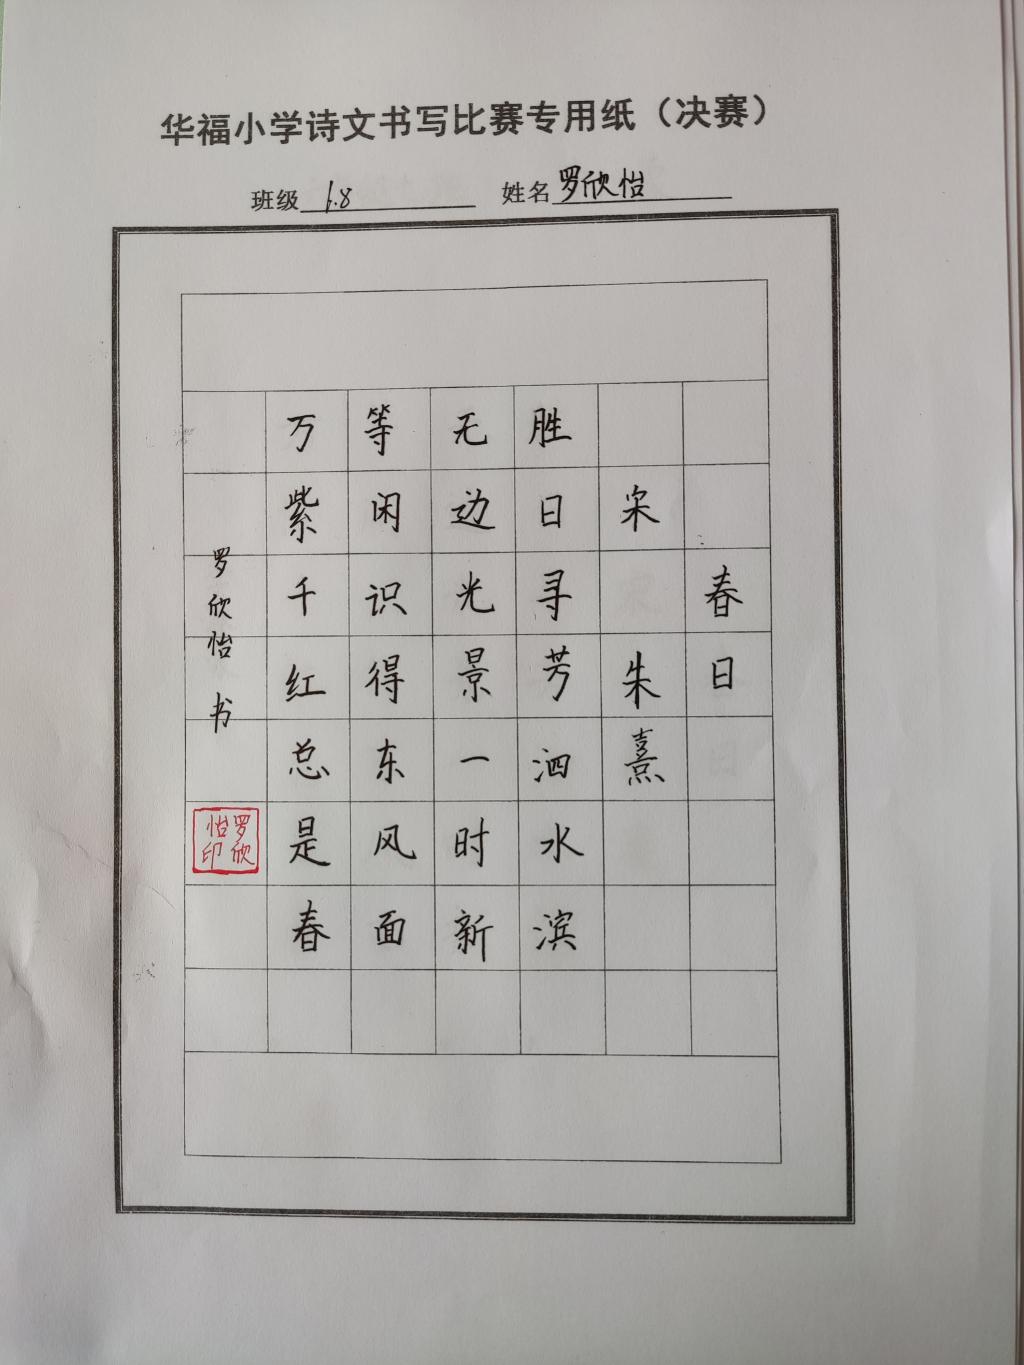 华福小学诗文书写比赛专用纸（决赛）
班级 1.8 姓名 罗欣怡
春日
宋 朱熹
胜日寻芳泗水滨
无边光景一时新
等闲识得东风面
万紫千红总是春
罗欣怡 书
罗欣怡印